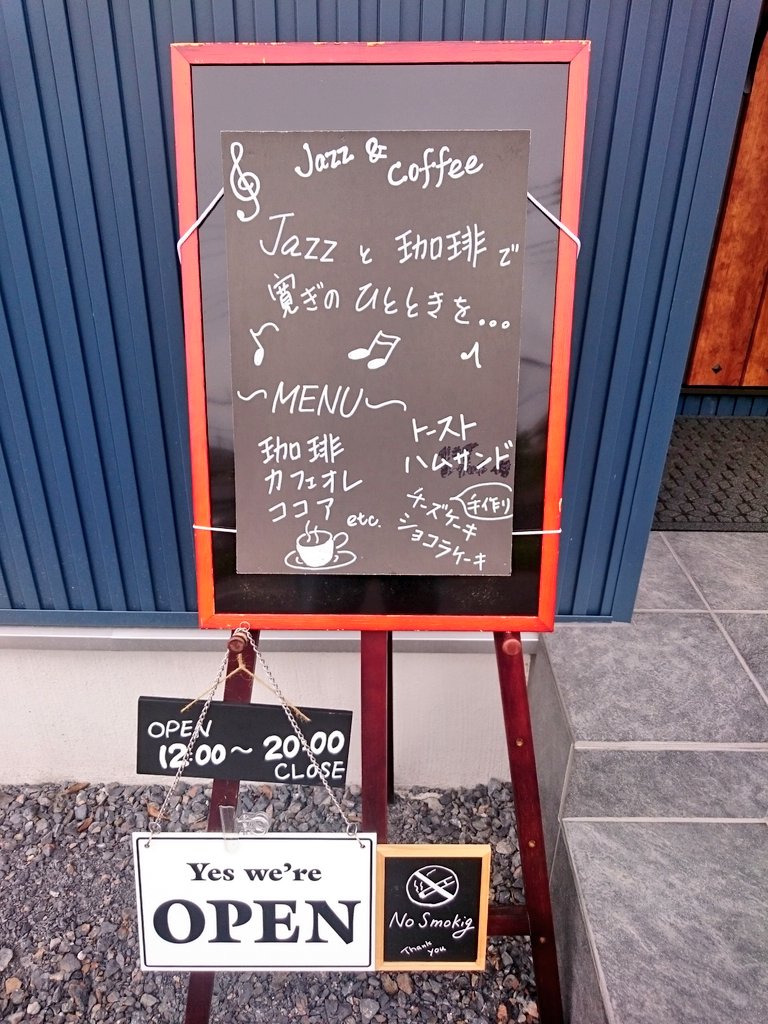 Jazz & Coffee
Jazz と 珈琲 で
寛ぎの ひとときを...
~MENU~
珈琲
カフェオレ
ココア
etc.
トースト
ハムサンド
手作り
チーズケーキ
ショコラケーキ
OPEN
12:00~20:00
CLOSE
Yes we're
OPEN
No Smokig
Thank
you